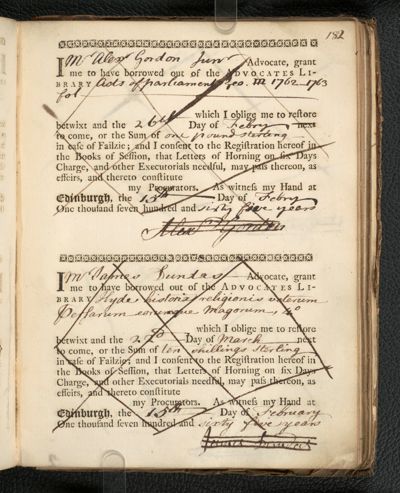 182
I Mr Alexr Gordon Junr Advocate, grant
me to have borrowed out of the ADVOCATES LI-
BRARY Acts of parliament Geo. III 1762–1763
fol.
which I oblige me to restore
betwixt and the 26th Day of Febry next
to come, or the Sum of one pound sterling
in case of Failzie; and I consent to the Registration hereof in
the Books of Session, that Letters of Horning on six Days
Charge, and other Executorials needful, may pass thereon, as
effeirs, and thereto constitute
my Procurators. As witness my Hand at
Edinburgh, the 15th Day of Febry
One thousand seven hundred and sixty five years
Alexr Gordon
I Mr James Dundas Advocate, grant
me to have borrowed out of the ADVOCATES LI-
BRARY Hyde, historia religionis veterum
Persarum eorumque Magorum, 4o
which I oblige me to restore
betwixt and the Day of March next
to come, or the Sum of ten shillings sterling
in case of Failzie; and I consent to the Registration hereof in
the Books of Session, that Letters of Horning on six Days
Charge, and other Executorials needful, may pass thereon, as
effeirs, and thereto constitute
my Procurators. As witness my Hand at
Edinburgh, the 15th Day of February
One thousand seven hundred and sixty five years
James Dundas